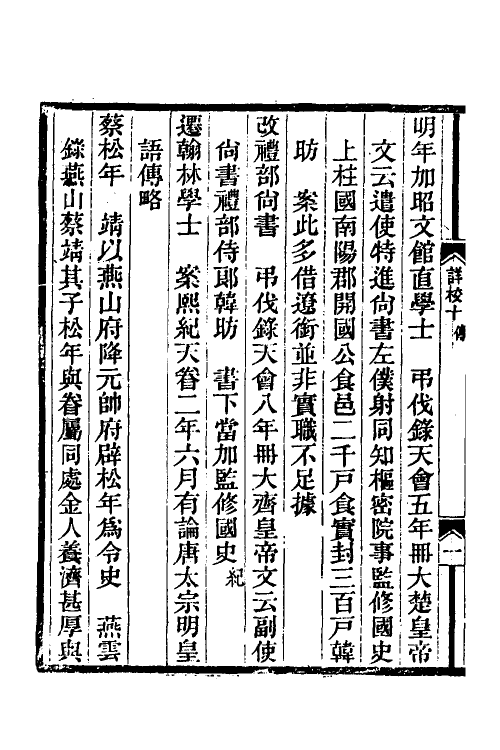 明年加昭文館直學士　弔伐錄天會五年冊大楚皇帝
文云遣使特進尙書左僕射同知樞密院事監修國史
上柱國南陽郡開國公食邑二千戸食實封三百戸韓
昉　案此多借遼銜並非實職不足據
改禮部尙書　弔伐錄天會八年冊大齊皇帝文云副使
尙書禮部侍郞韓昉　書下當加監修國史紀
遷翰林學士　案熙紀天眷二年六月有論唐太宗明皇
語傳略
蔡松年　靖以燕山府降元帥府辟松年爲令史　燕雲
錄燕山蔡靖其子松年與眷屬同處金人養濟甚厚與
詳校十　傳
一